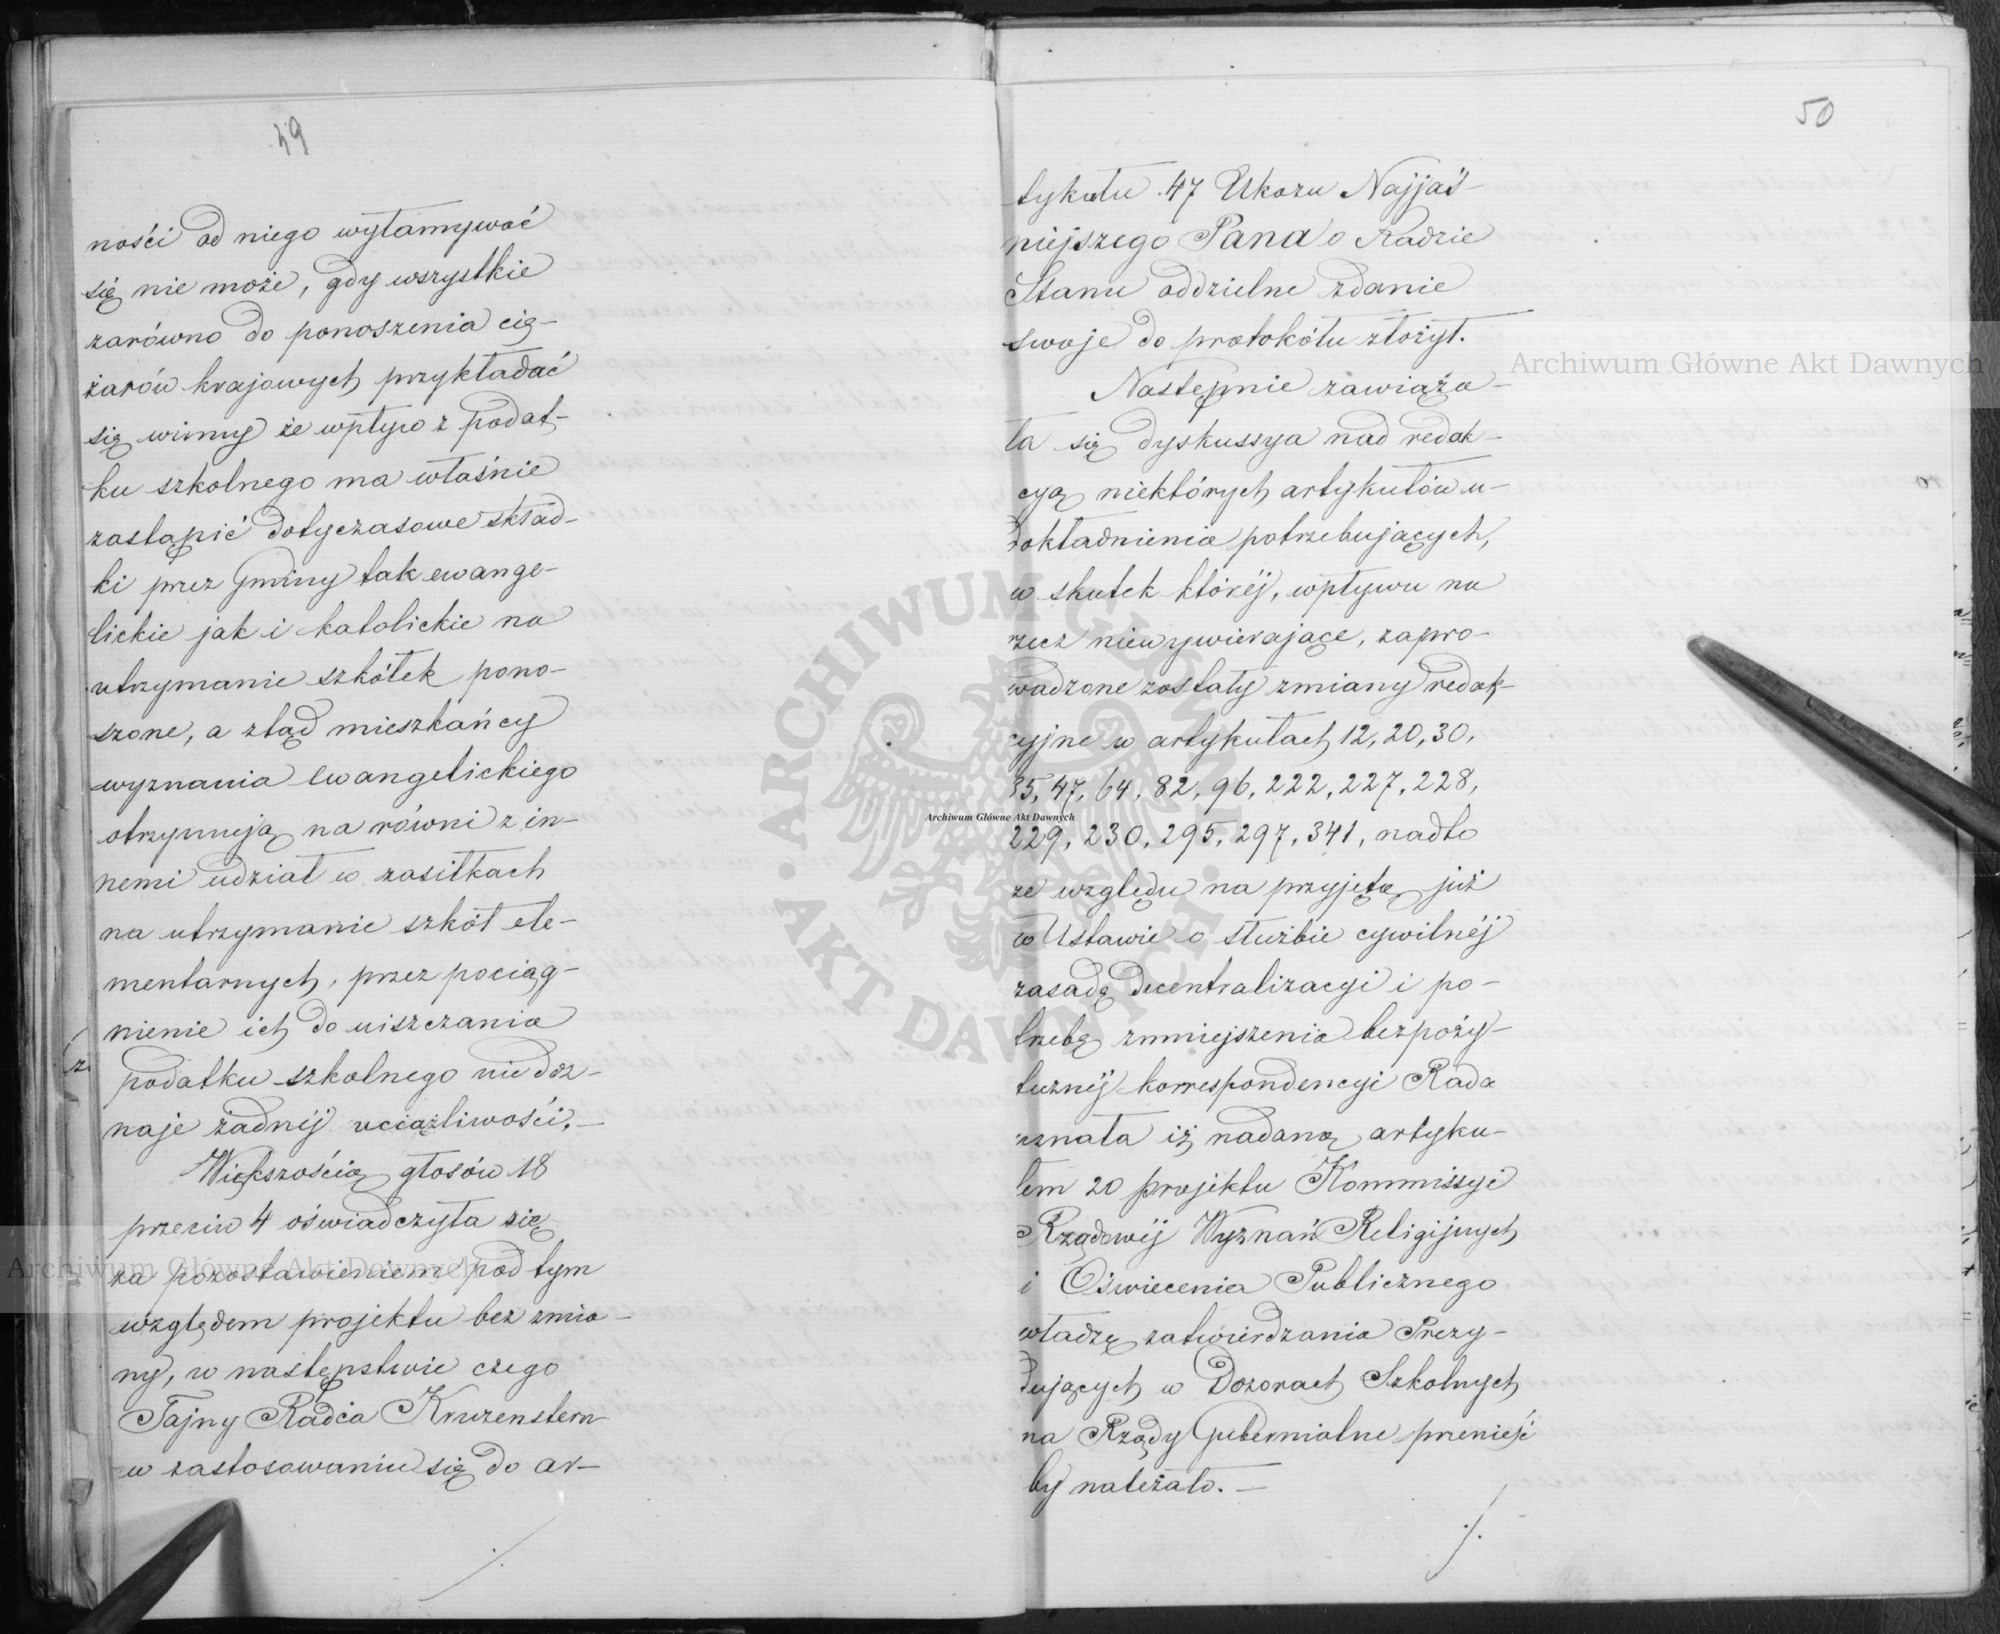 49
ności od niego wyłamywać
się nie może, gdy wszystkie
zarówno do ponoszenia cię-
żarów krajowych przykładać
się winny że wpływ z podat-
ku szkolnego ma właśnie
zastąpić dotyczasowe skład-
ki przez Gminy tak ewange-
lickie jak i katolickie na
utrzymanie szkółek pono-
szone, a ztąd mieszkańcy
wyznania Ewangelickiego
otrzymują na równi z in-
nemi udział w zasiłkach
na utrzymanie szkół ele-
mentarnych, przez pociąg-
nienie ich do uiszczania
podatku szkolnego nie doz-
naje żadnéj uciążliwości. —
Większością głosów 18
przeciw 4 oświadczyła się
za pozostawieniem pod tym
względem projektu bez zmia-
ny, w następstwie czego
Tajny Radca Kruzenstern
w zastosowaniu się do ar-
./.
50
tykułu 47 Ukazu Najjaś-
niejszego Pana o Radzie
Stanu oddzielne zdanie
swoje do protokółu złożył.
Następnie zawiąza-
ła się dyskussya nad redak-
cyą niektórych artykułów u-
dokładnienia potrzebujących,
w skutek któréj, wpływu na
rzecz niewywierające, zapro-
wadzone zostały zmiany redak-
cyjne w artykułach 12, 20, 30,
35, 47, 64, 82, 96, 222, 227, 228,
229, 230, 295, 297, 341, nadto
ze względu na przyjętą już
w Ustawie o służbie cywilnéj
zasadę decentralizacyi i po-
trzebę zmniejszenia bezpoży-
tecznéj korrespondencyi Rada
uznała iż nadaną artyku-
łem 20 projektu Kommissyi
Rządowéj Wyznań Religijnych
i Oświecenia Publicznego
władzę zatwierdzania Prezy-
dujących w Dozorach Szkolnych
na Rządy Gubernialne przenieść
by należało. —
./.
Archiwum Główne Akt Dawnych
Archiwum Główne Akt Dawnych
Archiwum Główne Akt Dawnych
ARCHIWUM GŁÓWNE AKT DAWNYCH